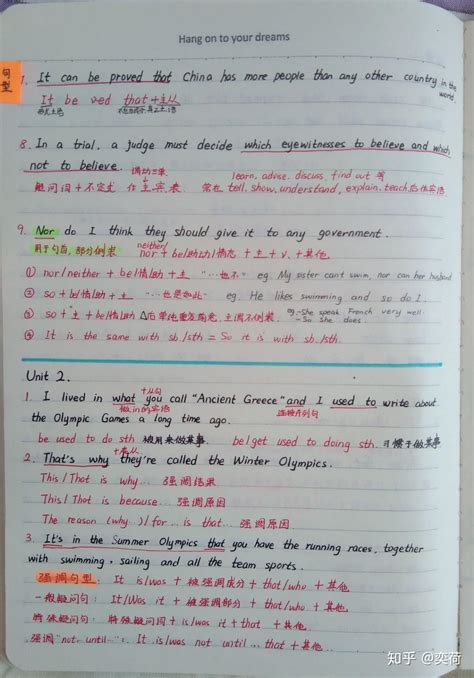 Hang on to your dreams
句型
7. It can be proved that China has more people than any other country in the world.
It be ved that + 主从
8. In a trial, a judge must decide which eyewitnesses to believe and which
not to believe.
learn, advise, discuss, find out 等
疑问词 + 不定式 作主宾表. 常在 tell, show, understand, explain, teach后作宾语
9. Nor do I think they should give it to any government.
用于句首, 部分倒装
neither/
nor + be/助动/情态 + 主 + v. + 其他.
① nor/neither + be/情/助 + 主 "…也不" eg. My sister can't swim, nor can her husband
② so + be/情/助 + 主 "…也是如此" eg. He likes swimming and so do I.
③ so + 主 + be/情/助 eg. -She speak French very well.
-So She does.
④ It is the same with sb./sth = So it is with sb./sth.
Unit 2.
+从句
1. I lived in what you call "Ancient Greece" and I used to write about
做in的宾语
连接并列句
the Olympic Games a long time ago.
be used to do sth 被用来做某事 be/get used to doing sth. 习惯于做某事
2. That's why they're called the Winter Olympics.
This/That is why... 强调结果
This/That is because... 强调原因
The reason (why..)/for... is that... 强调原因
3. It's in the Summer Olympics that you have the running races, together
with swimming, sailing and all the team sports.
强调句型: It is/was + 被强调成分 + that/who + 其他
一般疑问句: Is/Was it + 被强调部分 + that/who + 其他.
特殊疑问句: 特殊疑问词 + is/was it + that + 其他.
强调"not…until…" It is/was not until … that + 其他.
知乎 @奕荷